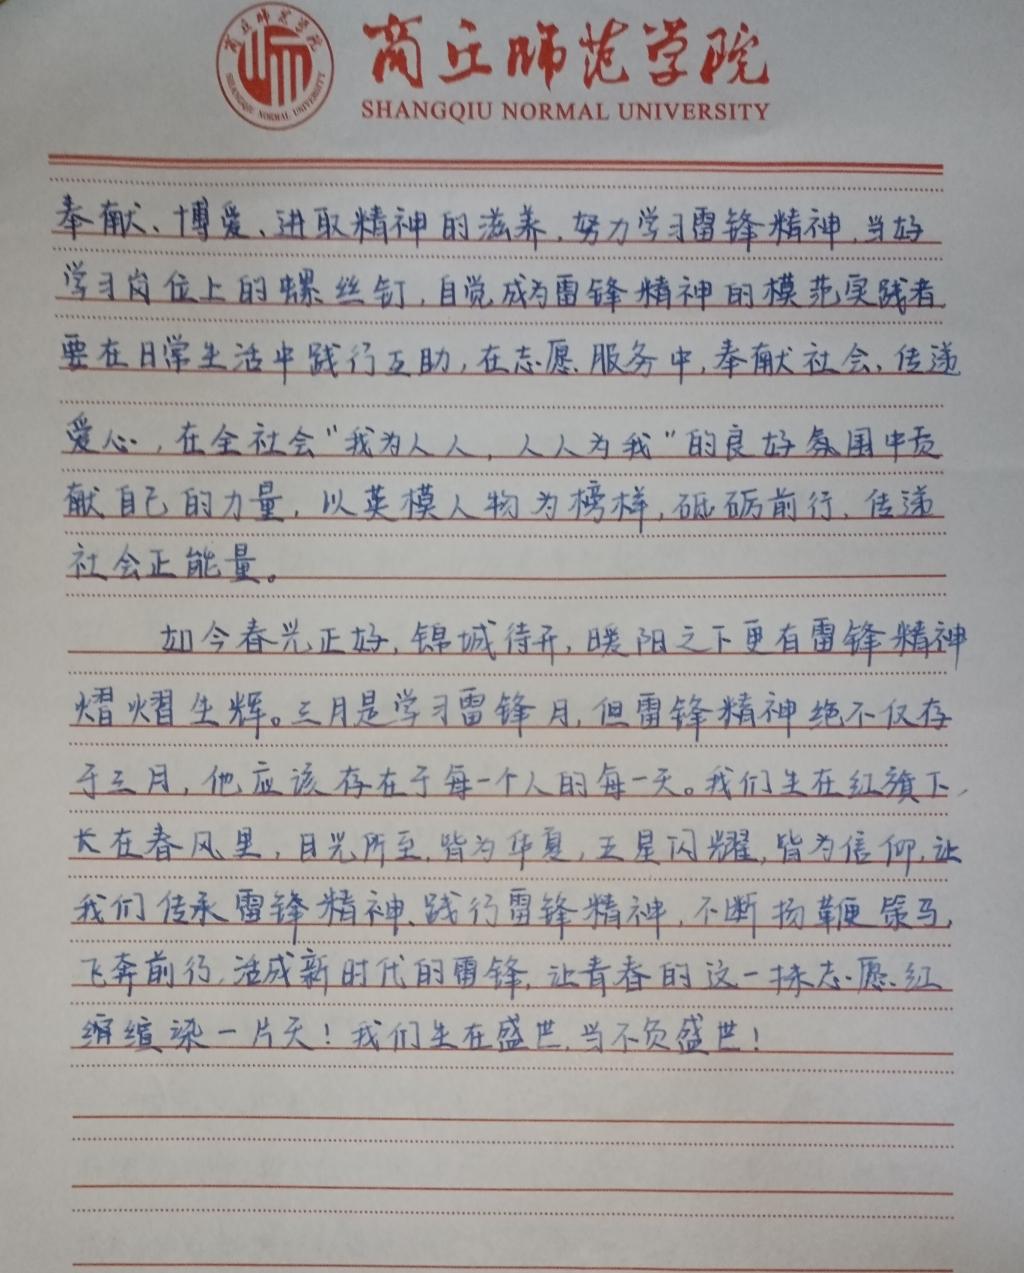 商丘师范学院
SHANGQIU NORMAL UNIVERSITY
商丘师范学院
SHANGQIU NORMAL UNIVERSITY
奉献、博爱、进取精神的滋养,努力学习雷锋精神,当好
学习岗位上的螺丝钉,自觉成为雷锋精神的模范实践者
要在日常生活中践行互助,在志愿服务中,奉献社会、传递
爱心,在全社会“我为人人,人人为我”的良好氛围中贡
献自己的力量,以英模人物为榜样,砥砺前行,传递
社会正能量。
如今春光正好,锦城待开,暖阳之下更有雷锋精神
熠熠生辉。三月是学习雷锋月,但雷锋精神绝不仅存
于三月,他应该存在于每一个人的每一天。我们生在红旗下,
长在春风里,目光所至,皆为华夏,五星闪耀,皆为信仰,让
我们传承雷锋精神、践行雷锋精神,不断扬鞭策马,
飞奔前行,活成新时代的雷锋,让青春的这一抹志愿红
缩渲染一片天!我们生在盛世,当不负盛世!